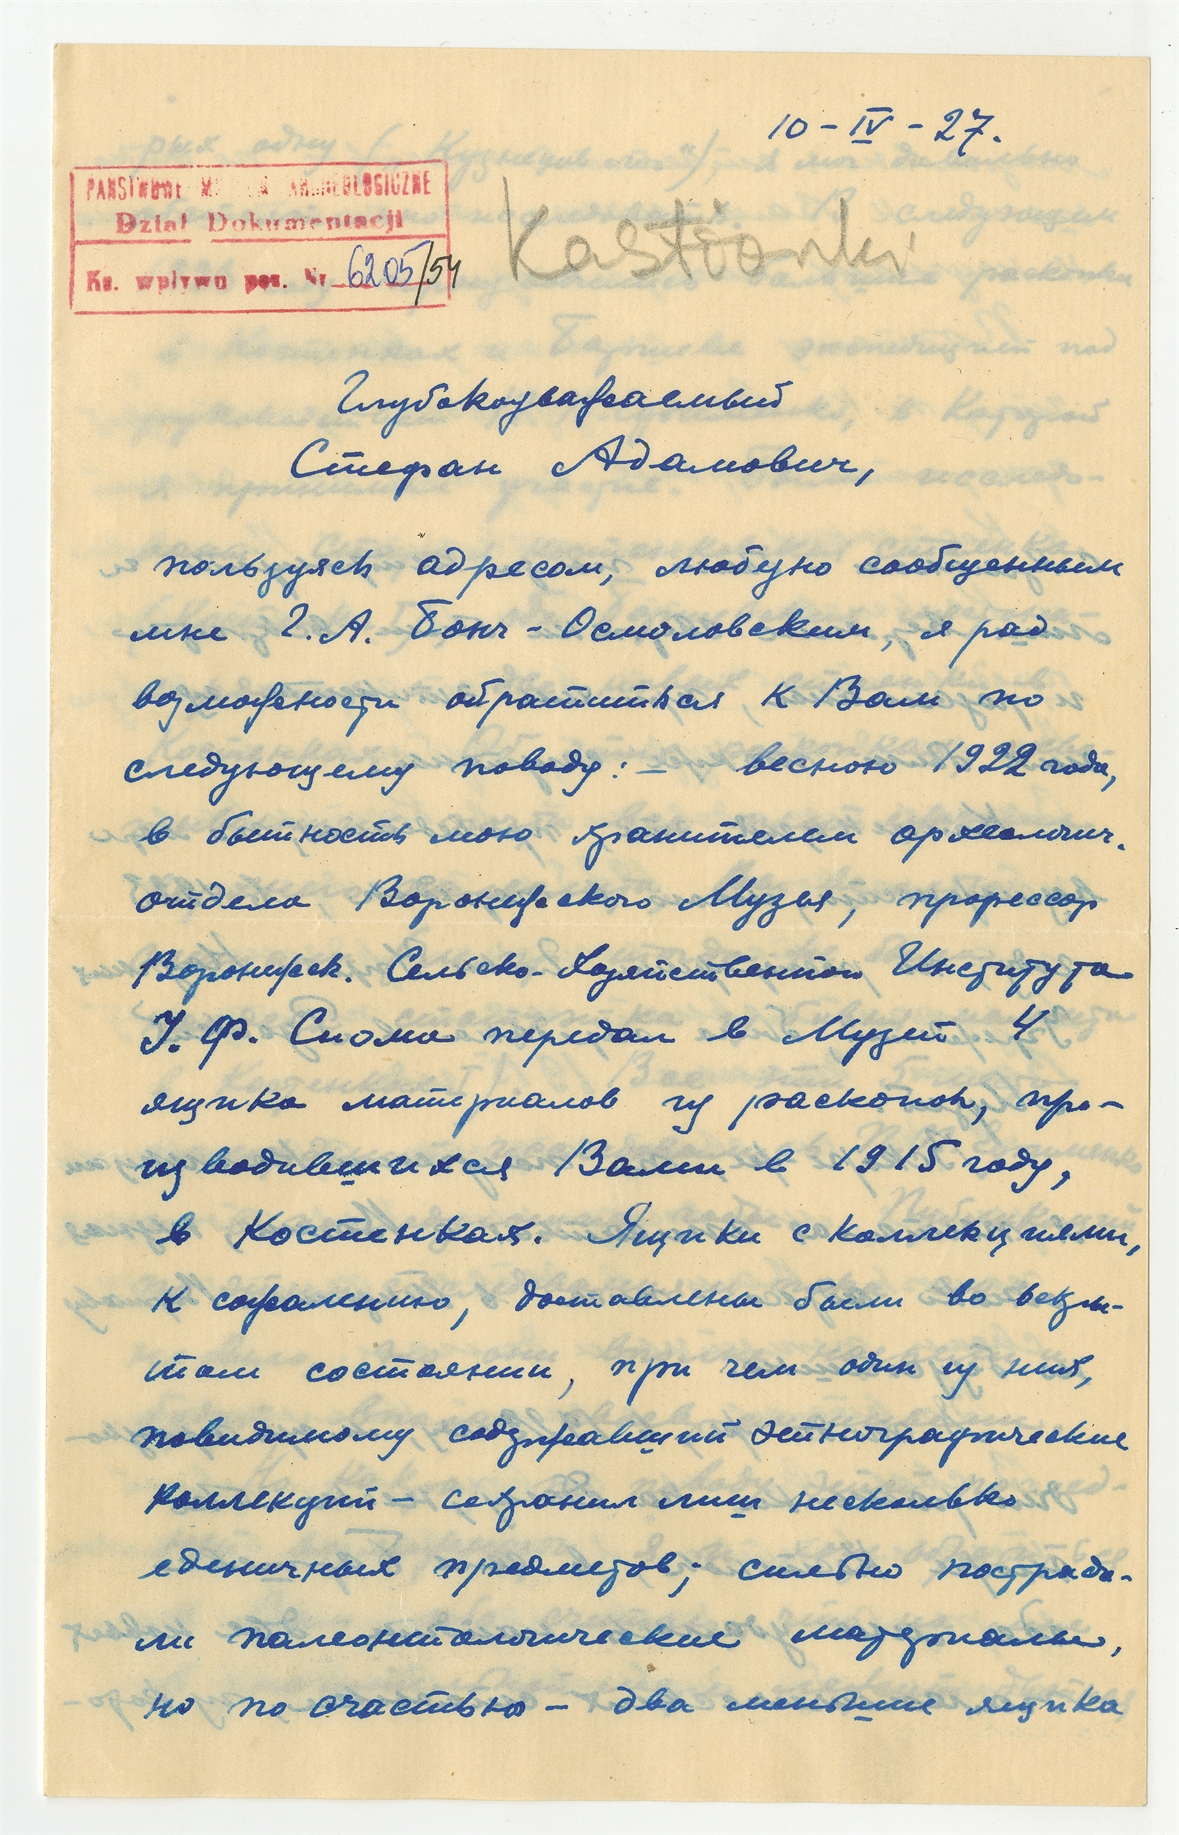 10-IV-27.
PAŃSTWOWE MUZEUM ARCHEOLOGICZNE
Dział Dokumentacji
Ks. wpływu poz. Nr 6205/54
Kostionki
Глубокоуважаемый
Стефан Адамович,
пользуясь адресом, любезно сообщенным
мне Г.А. Бонч-Осмоловским, я рад
возможности обратиться к Вам по
следующему поводу: – весною 1922 года,
в бытность мою хранителем археологич.
отдела Воронежского Музея, профессор
Воронежск. Сельско-Хозяйственного Института
передал в Музей 4
ящика материалов из раскопок, про-
изводившихся Вами в 1915 году,
в Костенках. Ящики с коллекциями,
к сожалению, доставлены были во вскры-
том состоянии, при чем один из них,
повидимому содержавший этнографические
коллекции – сохранил лиш несколько
еденичных предметов; сильно пострада-
ли палеонтологические материалы,
но по счастью – два меньшие ящика